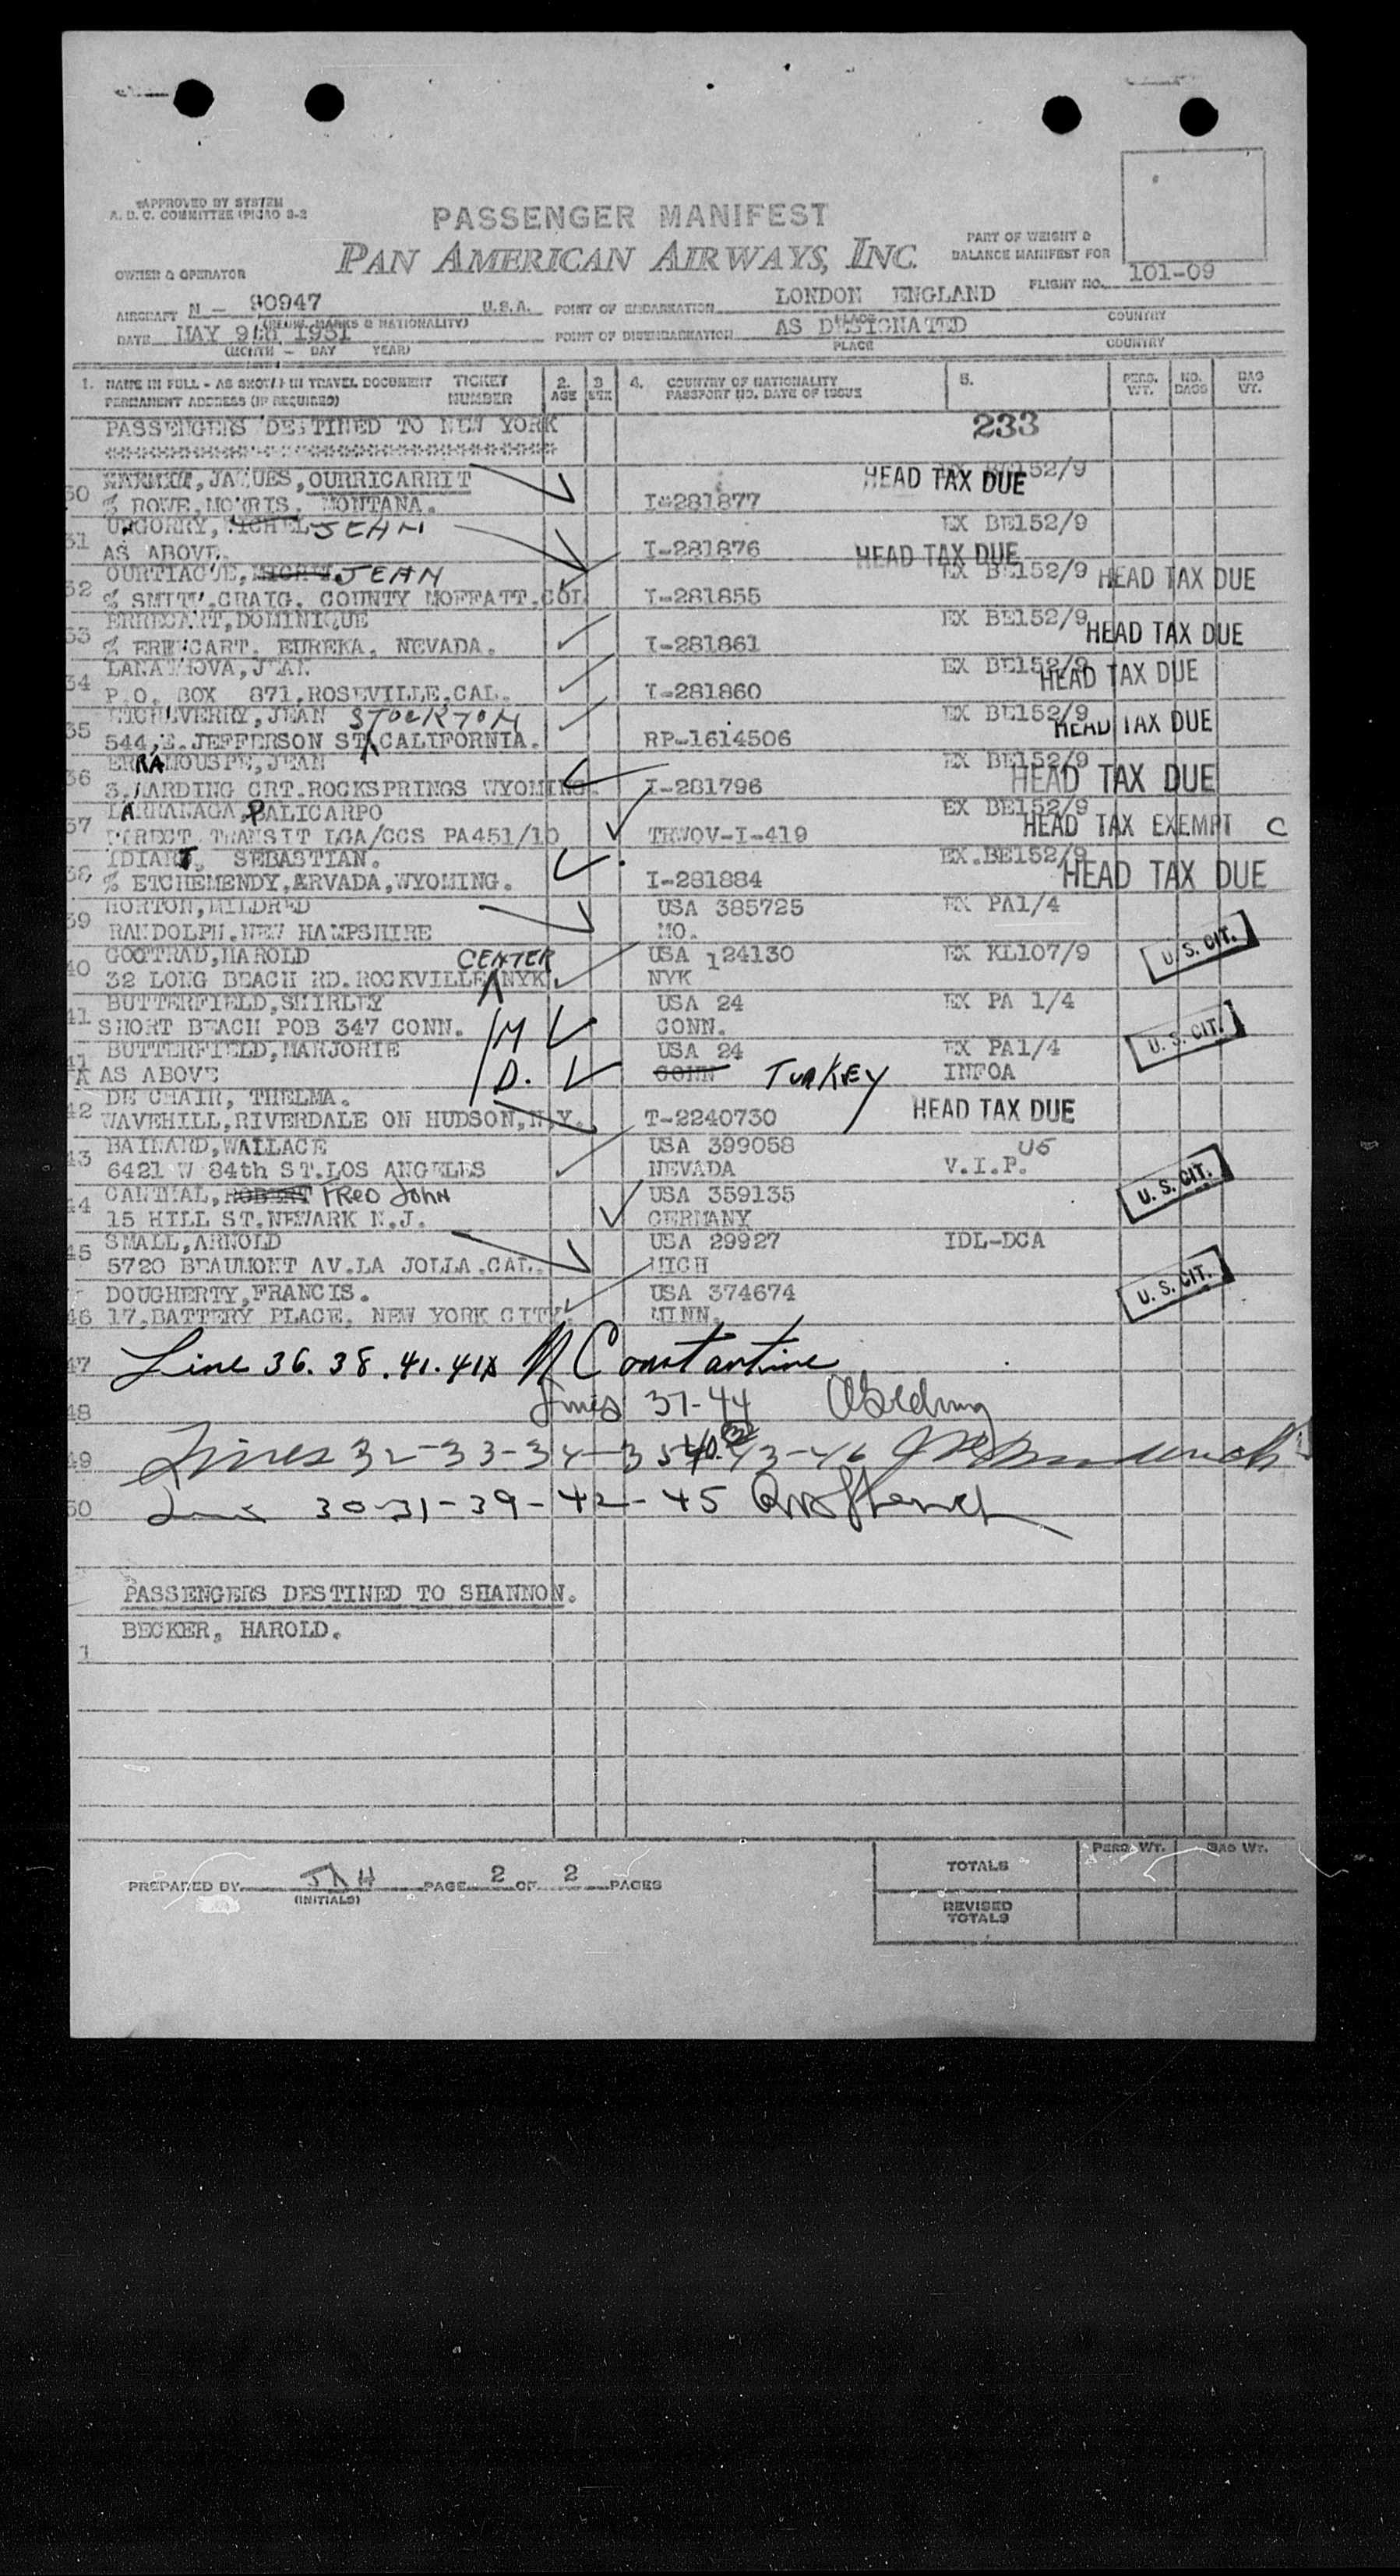 APPROVED BY SYSTEM
A. D. C. COMMITTEE (PICAO 9-2
PASSENGER MANIFEST
PAN AMERICAN AIRWAYS, INC.
PART OF WEIGHT &
BALANCE MANIFEST FOR
OWNER & OPERATOR
FLIGHT NO. 101-09
AIRCRAFT N - 90947 U.S.A. POINT OF EMBARKATION LONDON ENGLAND
MARKS & NATIONALITY) PLACE COUNTRY
DATE MAY 9th 1951 POINT OF DISEMBARKATION AS DESIGNATED
(MONTH - DAY YEAR) PLACE COUNTRY
1. NAME IN FULL - AS SHOWN IN TRAVEL DOCUMENT TICKET 2. 3 4. COUNTRY OF NATIONALITY 5. PERS. NO. BAG
PERMANENT ADDRESS (IF REQUIRED) NUMBER AGE SEX PASSPORT NO. DATE OF ISSUE WT. BAGS WT.
PASSENGERS DESTINED TO NEW YORK 233
JAQUES, OURRICARRIT HEAD TAX DUE EX BE152/9
30 % ROWE, MORRIS, MONTANA. I-281877
JEAN EX BE152/9
31 AS ABOVE. I-281876 HEAD TAX DUE
OURTIAGUE, JEAN EX BE152/9 HEAD TAX DUE
32 % SMITH, CRAIG, COUNTY MOFFATT.COL I-281855
ERRECART, DOMINIQUE EX BE152/9 HEAD TAX DUE
33 % ERRECART. EUREKA. NEVADA. I-281861
JEAN EX BE152/9 HEAD TAX DUE
34 P.O. BOX 871, ROSEVILLE. CAL. I-281860
ETCHEVERRY, JEAN STOCKTON EX BE152/9 HEAD TAX DUE
35 544, E. JEFFERSON ST, CALIFORNIA. RP-1614506
ERRAMOUSPE, JEAN EX BE152/9 HEAD TAX DUE
36 3. HARDING CRT. ROCKSPRINGS WYOMING. I-281796
LARRANAGA, PALICARPO EX BE152/9 HEAD TAX EXEMPT C
37 DIRECT TRANSIT LGA/CCS PA451/10 TRWOV-I-419
IDIART, SEBASTIAN. EX.BE152/9 HEAD TAX DUE
38 % ETCHEMENDY, ARVADA, WYOMING. I-281884
HORTON, MILDRED USA 385725 EX PA1/4
39 RANDOLPH. NEW HAMPSHIRE MO.
GOOTRAD, HAROLD CENTER USA 124130 EX KL107/9 U.S. CIT.
40 32 LONG BEACH RD. ROCKVILLE NYK. NYK
BUTTERFIELD, SHIRLEY USA 24 EX PA 1/4
41 SHORT BEACH POB 347 CONN. M CONN. U.S. CIT.
41 BUTTERFIELD, MARJORIE USA 24 EX PA1/4
A AS ABOVE D. CONN TURKEY INFOA
DE CHAIR, THELMA. HEAD TAX DUE
42 WAVEHILL, RIVERDALE ON HUDSON, N.Y. T-2240730
BAINARD, WALLACE USA 399058 US
43 6421 W 84th ST. LOS ANGELES NEVADA V.I.P. U.S. CIT.
CANTHAL, ROBERT FRED JOHN USA 359135
44 15 HILL ST. NEWARK N.J. GERMANY
SMALL, ARNOLD USA 29927 IDL-DCA
45 5720 BEAUMONT AV. LA JOLLA. CAL. MICH
DOUGHERTY, FRANCIS. USA 374674 U.S. CIT.
46 17, BATTERY PLACE, NEW YORK CITY MINN.
47 Line 36. 38. 41. 41A N Constantine
48 Lines 37-44
49 Lines 32-33-34-35-40 43-46
50 Lines 30-31-39-42-45
PASSENGERS DESTINED TO SHANNON.
BECKER, HAROLD.
1
PREPARED BY JAH PAGE 2 OF 2 PAGES
(INITIALS)
PERS. WT. BAG WT.
TOTALS
REVISED
TOTALS